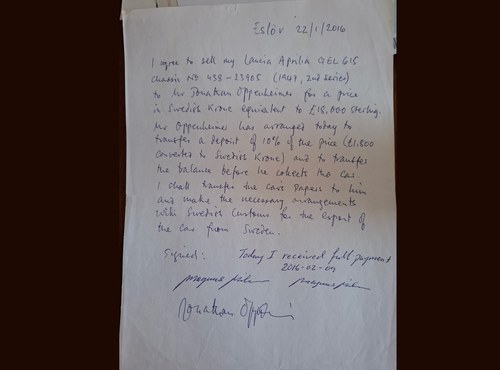 Eslöv 22/1/2016
I agree to sell my Lancia Aprilia GEL 615
chassis No 438-23905 (1947, 2nd series)
to Mr Jonathan Oppenheimer for a price
in Swedish Krone equivalent to £18,000 sterling.
Mr Oppenheimer has arranged today to
transfer a deposit of 10% of the price (£1,800
converted to Swedish Krone) and to transfer
the balance before he collects the car.
I shall transfer the cars papers to him
and make the necessary arrangements
with Swedish Customs for the export of
the car from Sweden.
Signed: Today I received full payment
2016-02-09
Magnus
Magnus
Jonathan